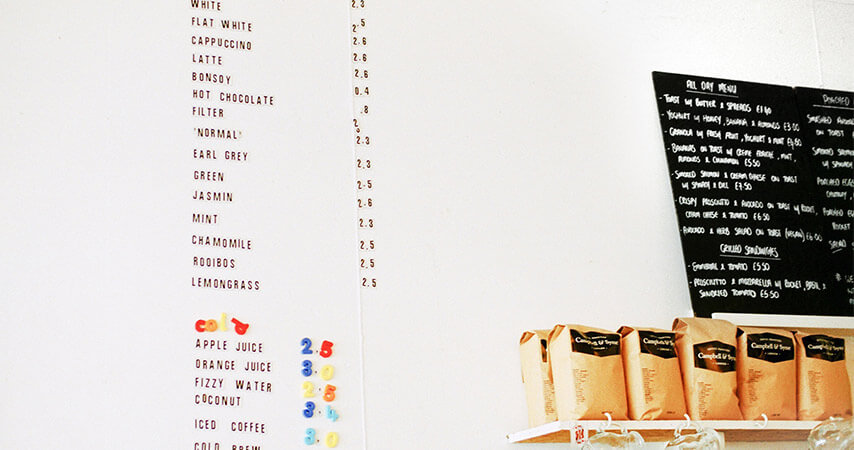 WHITE 2.3
FLAT WHITE .5
CAPPUCCINO 2.6
LATTE 2.6
BONSOY 2.6
HOT CHOCOLATE 0.4
FILTER .8
'NORMAL' 2.3
EARL GREY 2.3
GREEN 2.5
JASMIN 2.6
MINT 2.3
CHAMOMILE 2.5
ROOIBOS 2.5
LEMONGRASS 2.5
cold
APPLE JUICE 2.5
ORANGE JUICE 3.0
FIZZY WATER 2.5
COCONUT 3.4
ICED COFFEE 3.0
COLD BREW
ALL DAY MENU
- TOAST W/ BUTTER & SPREADS £1.40
- YOGHURT W/ HONEY, BANANA & ALMONDS £3.00
- GRANOLA W/ FRESH FRUIT, YOGHURT & MINT £4.60
- BANANAS ON TOAST W/ CREME FRAICHE, MINT,
ALMONDS & CINNAMON £5.50
- SMOKED SALMON & CREAM CHEESE ON TOAST
W/ SPINACH & DILL £7.50
- CRISPY PROSCIUTTO & AVOCADO ON TOAST W/ ROCKET,
CREAM CHEESE & TOMATO £6.50
- AVOCADO & HERB SALAD ON TOAST (VEGAN) £6.00
GRILLED SANDWICHES
- EMMENTAL & TOMATO £5.50
- PROSCIUTTO & MOZZARELLA W/ ROCKET, BASIL &
SUNDRIED TOMATO £5.50
POACHED
SMASHED AVOCADO
ON TOAST
SMOKED SALMON
W/ SPINACH
POACHED EGGS
CHUTNEY,
POACHED
ROCKET
SALAD
Campbell & Syme
Campbell & Syme
Campbell & Syme
Campbell & Syme
Campbell & Syme